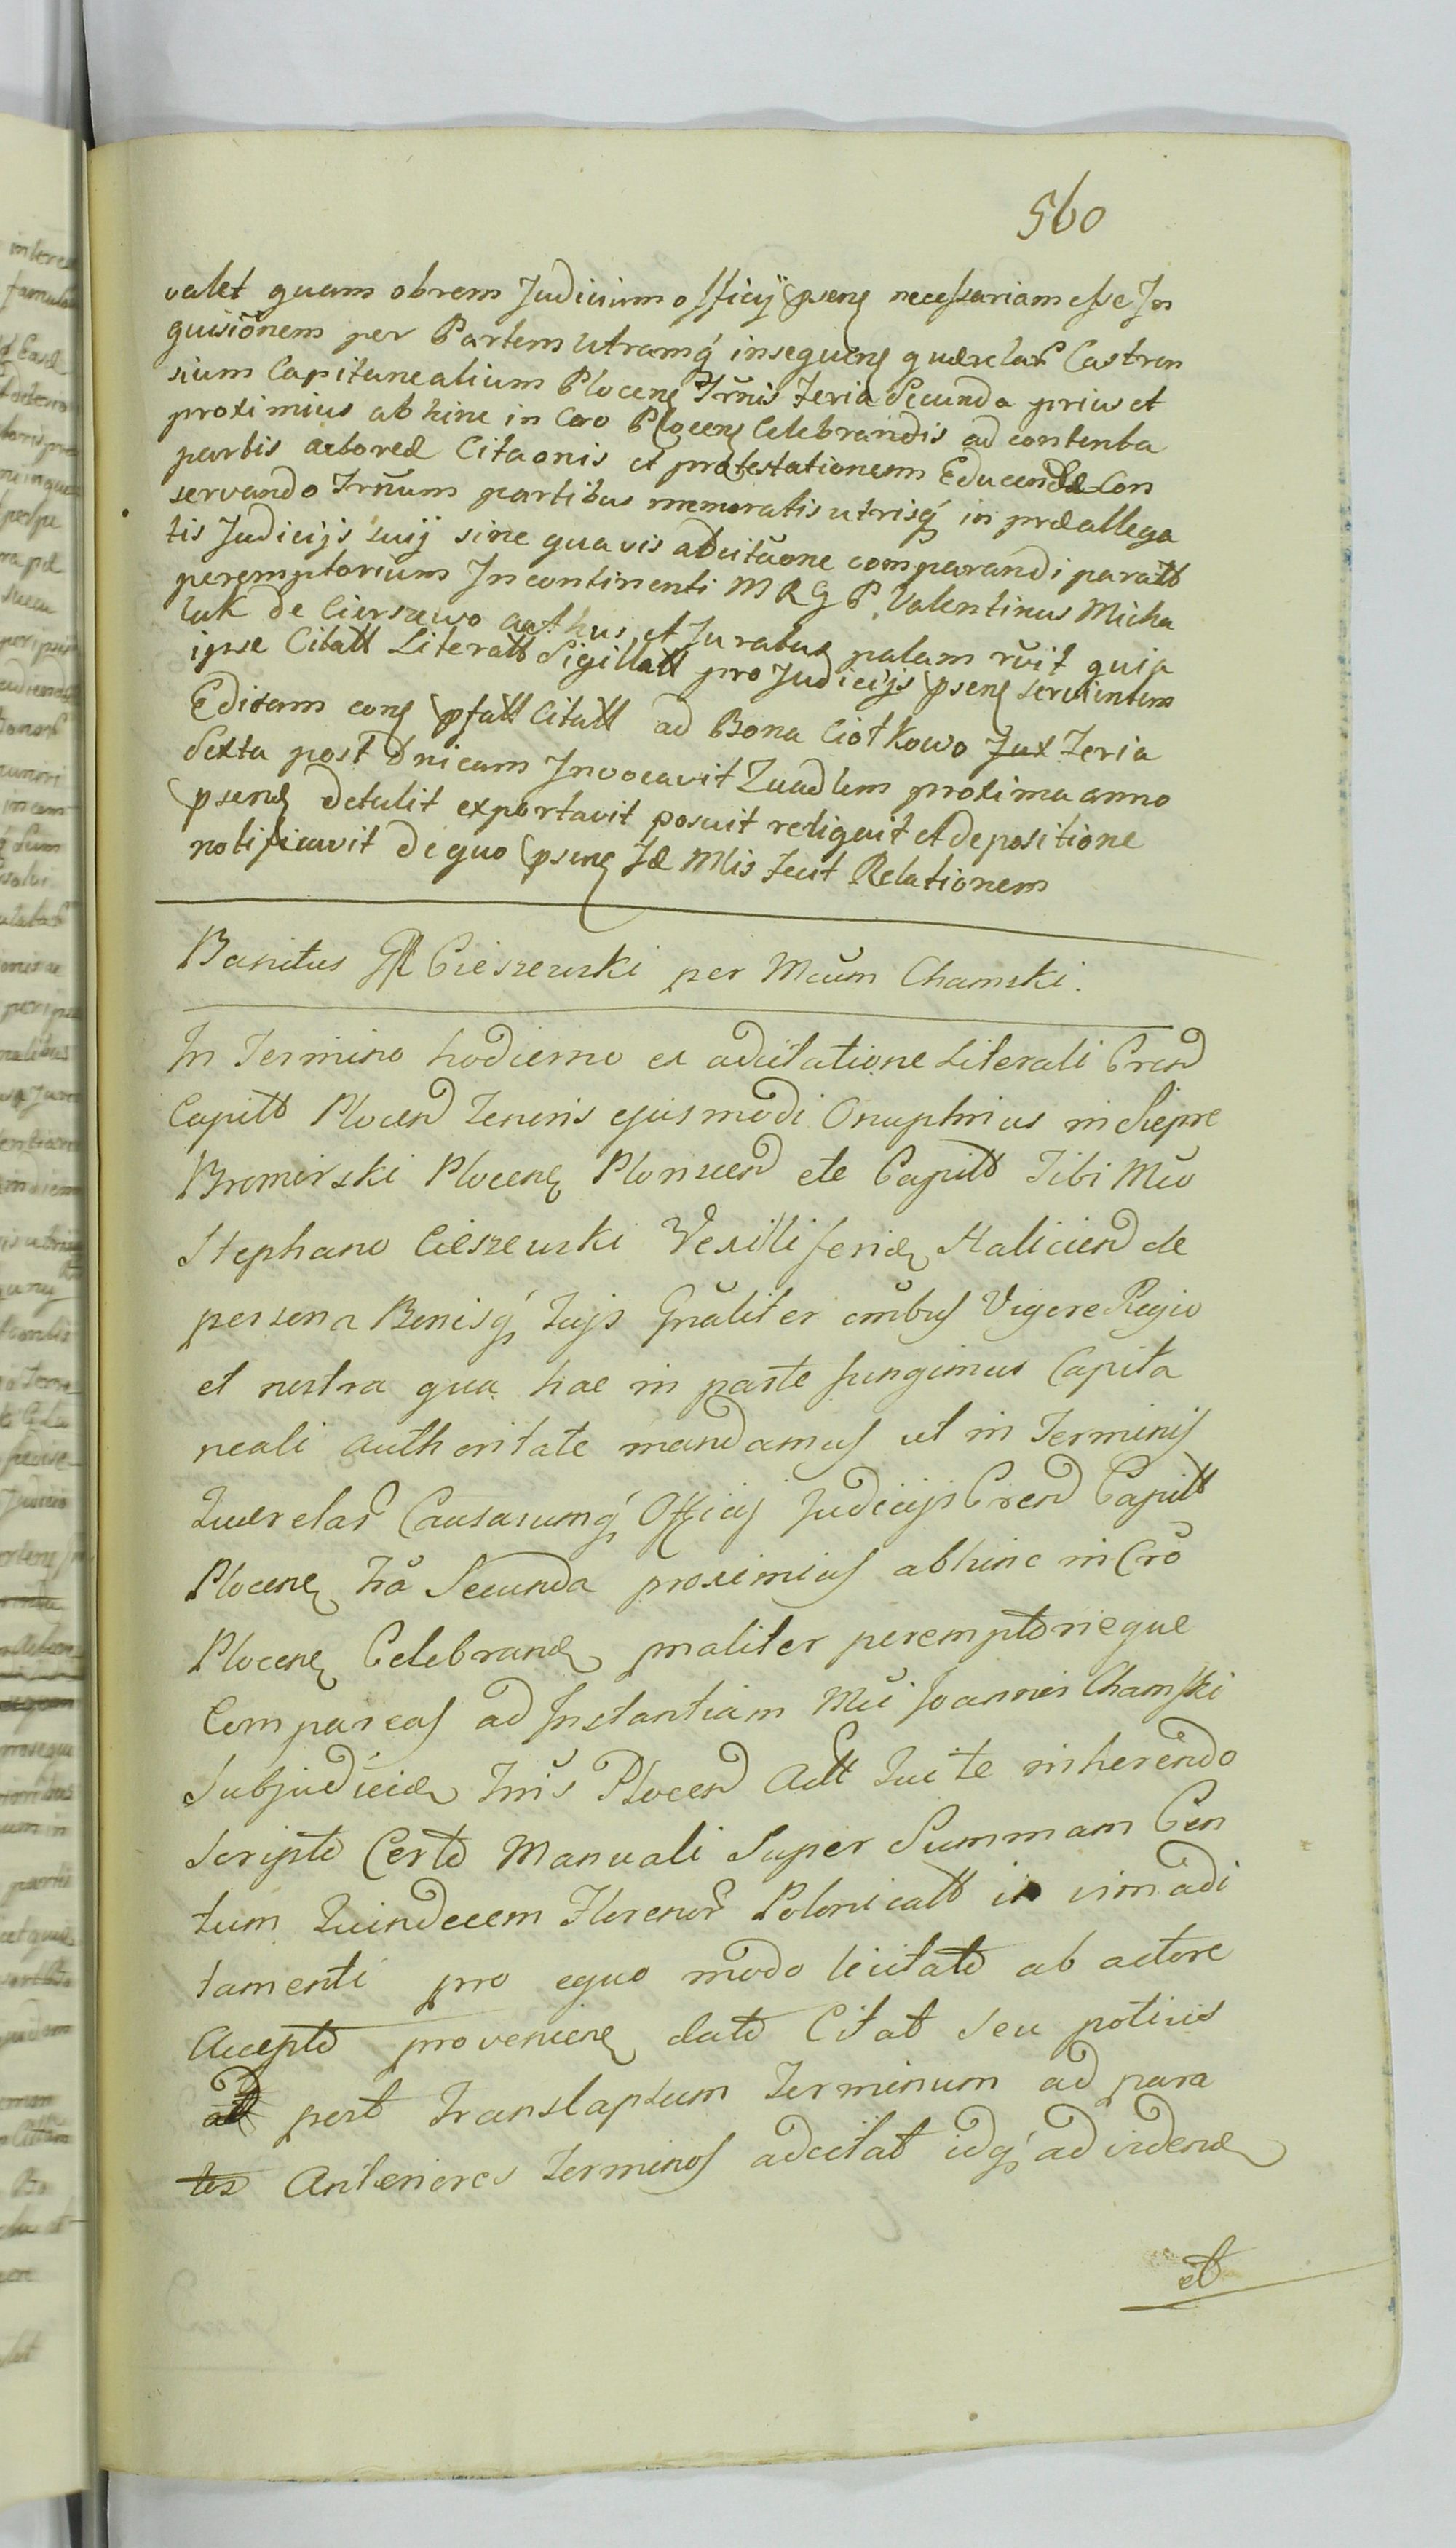 560
valet quam obrem Judicium officÿ psenς necessariam esse In
quisiōnem per Partem utramq́ insequenς querelar Castren
sium Capitanealium Plocenς Trm̄is Feria Secunda prius et
proximius abhinc in Cāro Plocenς Celebrandis ad contenta
partis actoreæ Citaonis et protestationem Educendæ Con
servando Trm̄um partibus memoratis utrisq́ in præallega
tis Judicijs suij sine quavis adcitāone comparandi paratt
peremptorium Incontinenti M R G P. Valentinus Micha
lak de Cierszewo authus et Juratus palam rūit quia
ipse Citatt Literatt Sigillatt pro Judicijs psenς servientem
Editam conς pfatt Citatt ad Bona Ciotkowo Jux Feria
Sexta post Dnicam Invocavit Quadlem proxima anno
psenς detulit exportavit posuit reliquit et depositione
notificavit de quo psenς Jæ Mlis fecit Relationem
Banitus Gl Cieszewski per Mcūm Chamski.
In Termino hodierno ex adcitatione Literali Cren
Capitt Plocen Tenoris ejusmodi Onuphrius in Siepre
Bromirski Plocenς Plonscen etc Capitt Tibi Mco
Stephano Cieszewski Vexilliferidæ Halicien de
persona Bonisq́ Tujs Gnāliter om̄ibus Vigore Regio
et nostra qua hac in parte fungimur Capita
neali authoritate mandamus ut in Terminis
Querelar Causarumq́ Officij Judicijs Cren Capitt
Plocenς fr̄a Secunda proximius abhinc in Crō
Plocenς Celebranς pnaliter peremptorieque
Compareas ad Instantiam Mci Joannis Chamski
Subjudicidæ Trr̄is Plocen Actt Qui te inhærendo
Scripto Certo Manuali Super Summam Cen
tum Quindecem Florenor Polonicatt in vim adi
tamenti pro equo modo licitato ab actore
Accepto provenienς dato Citat seu potius
ad post Translapsum Terminum ad para
tos Anteriores Terminos adcitat idq́ ad videnς
et